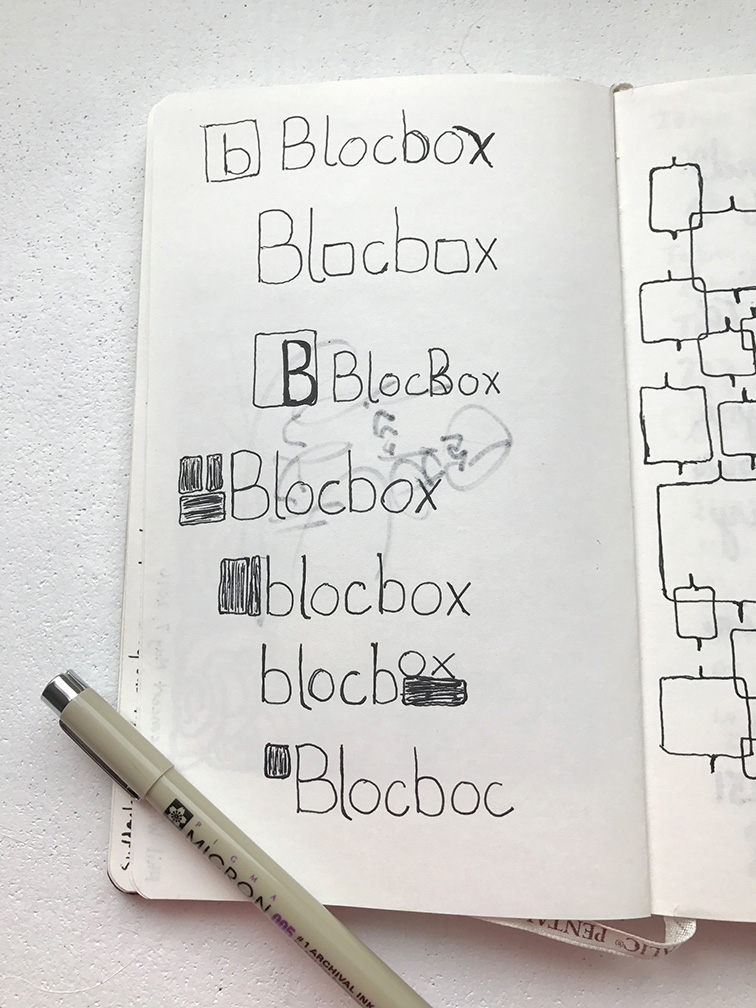 b Blocbox
Blocbox
B BlocBox
Blocbox
blocbox
blocbox
Blocboc
PIGMA
MICRON 005 #1 ARCHIVAL INK
ALIC® PENTA